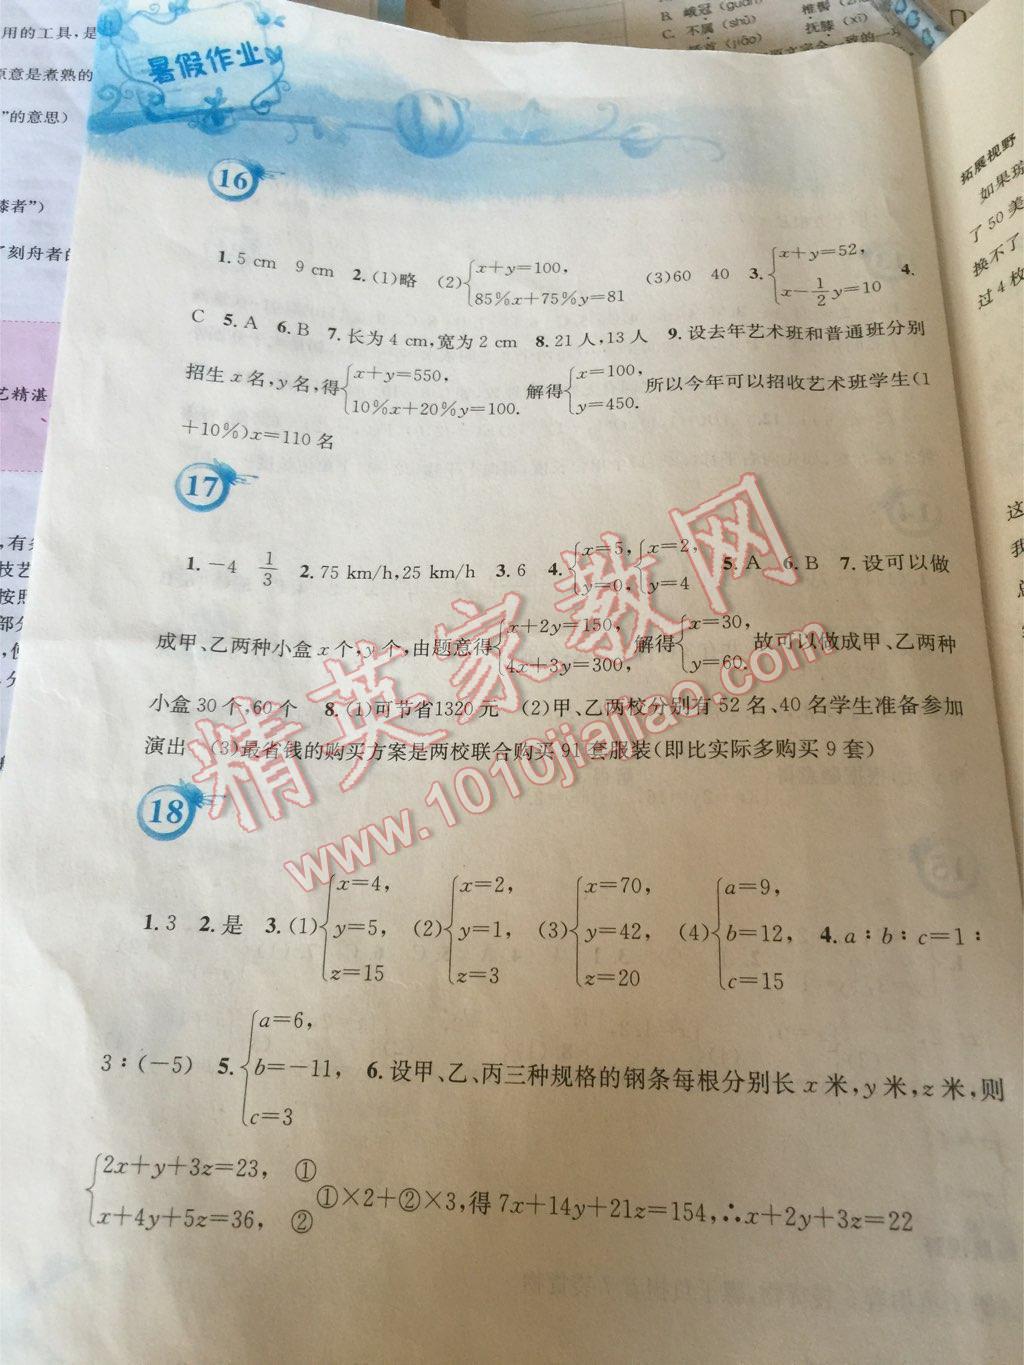 B. 峨冠（guān） 椎髻
C. 不属（shǔ） 抚膝（xī）
用的工具，是
原意是煮熟的
”的意思）
膝者”）
了刻舟者的
艺精湛
暑假作业
16
1. 5 cm 9 cm 2. (1)略 (2){x+y=100, 85%x+75%y=81 (3)60 40 3. {x+y=52, x-1/2y=10 4.
C 5. A 6. B 7. 长为 4 cm,宽为 2 cm 8. 21 人,13 人 9. 设去年艺术班和普通班分别
招生 x 名,y 名,得{x+y=550, 10%x+20%y=100. 解得{x=100, y=450. 所以今年可以招收艺术班学生(1
+10%)x=110 名
17
1. -4 1/3 2. 75 km/h,25 km/h 3. 6 4. {x=5, y=0, {x=2, y=4 5. A 6. B 7. 设可以做
成甲、乙两种小盒 x 个,y 个,由题意得{x+2y=150, 4x+3y=300, 解得{x=30, y=60. 故可以做成甲、乙两种
小盒 30 个,60 个 8. (1)可节省1320 元 (2)甲、乙两校分别有 52 名、40 名学生准备参加
演出 (3)最省钱的购买方案是两校联合购买 91 套服装(即比实际多购买 9 套)
18
1. 3 2. 是 3. (1){x=4, y=5, z=15 (2){x=2, y=1, z=3 (3){x=70, y=42, z=20 (4){a=9, b=12, c=15 4. a∶b∶c=1∶
3∶(-5) 5. {a=6, b=-11, c=3 6. 设甲、乙、丙三种规格的钢条每根分别长 x 米,y 米,z 米,则
{2x+y+3z=23, ① x+4y+5z=36, ② ①×2+②×3,得 7x+14y+21z=154,∴x+2y+3z=22
精英家教网
www.1010jiajiao.com
拓展视野
如果玩
了 50 美
换不了
过 4 枚